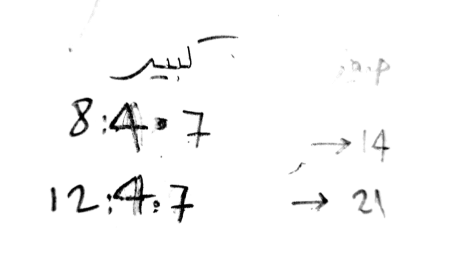 كبير
8:4:7 → 14
12:4:7 → 21